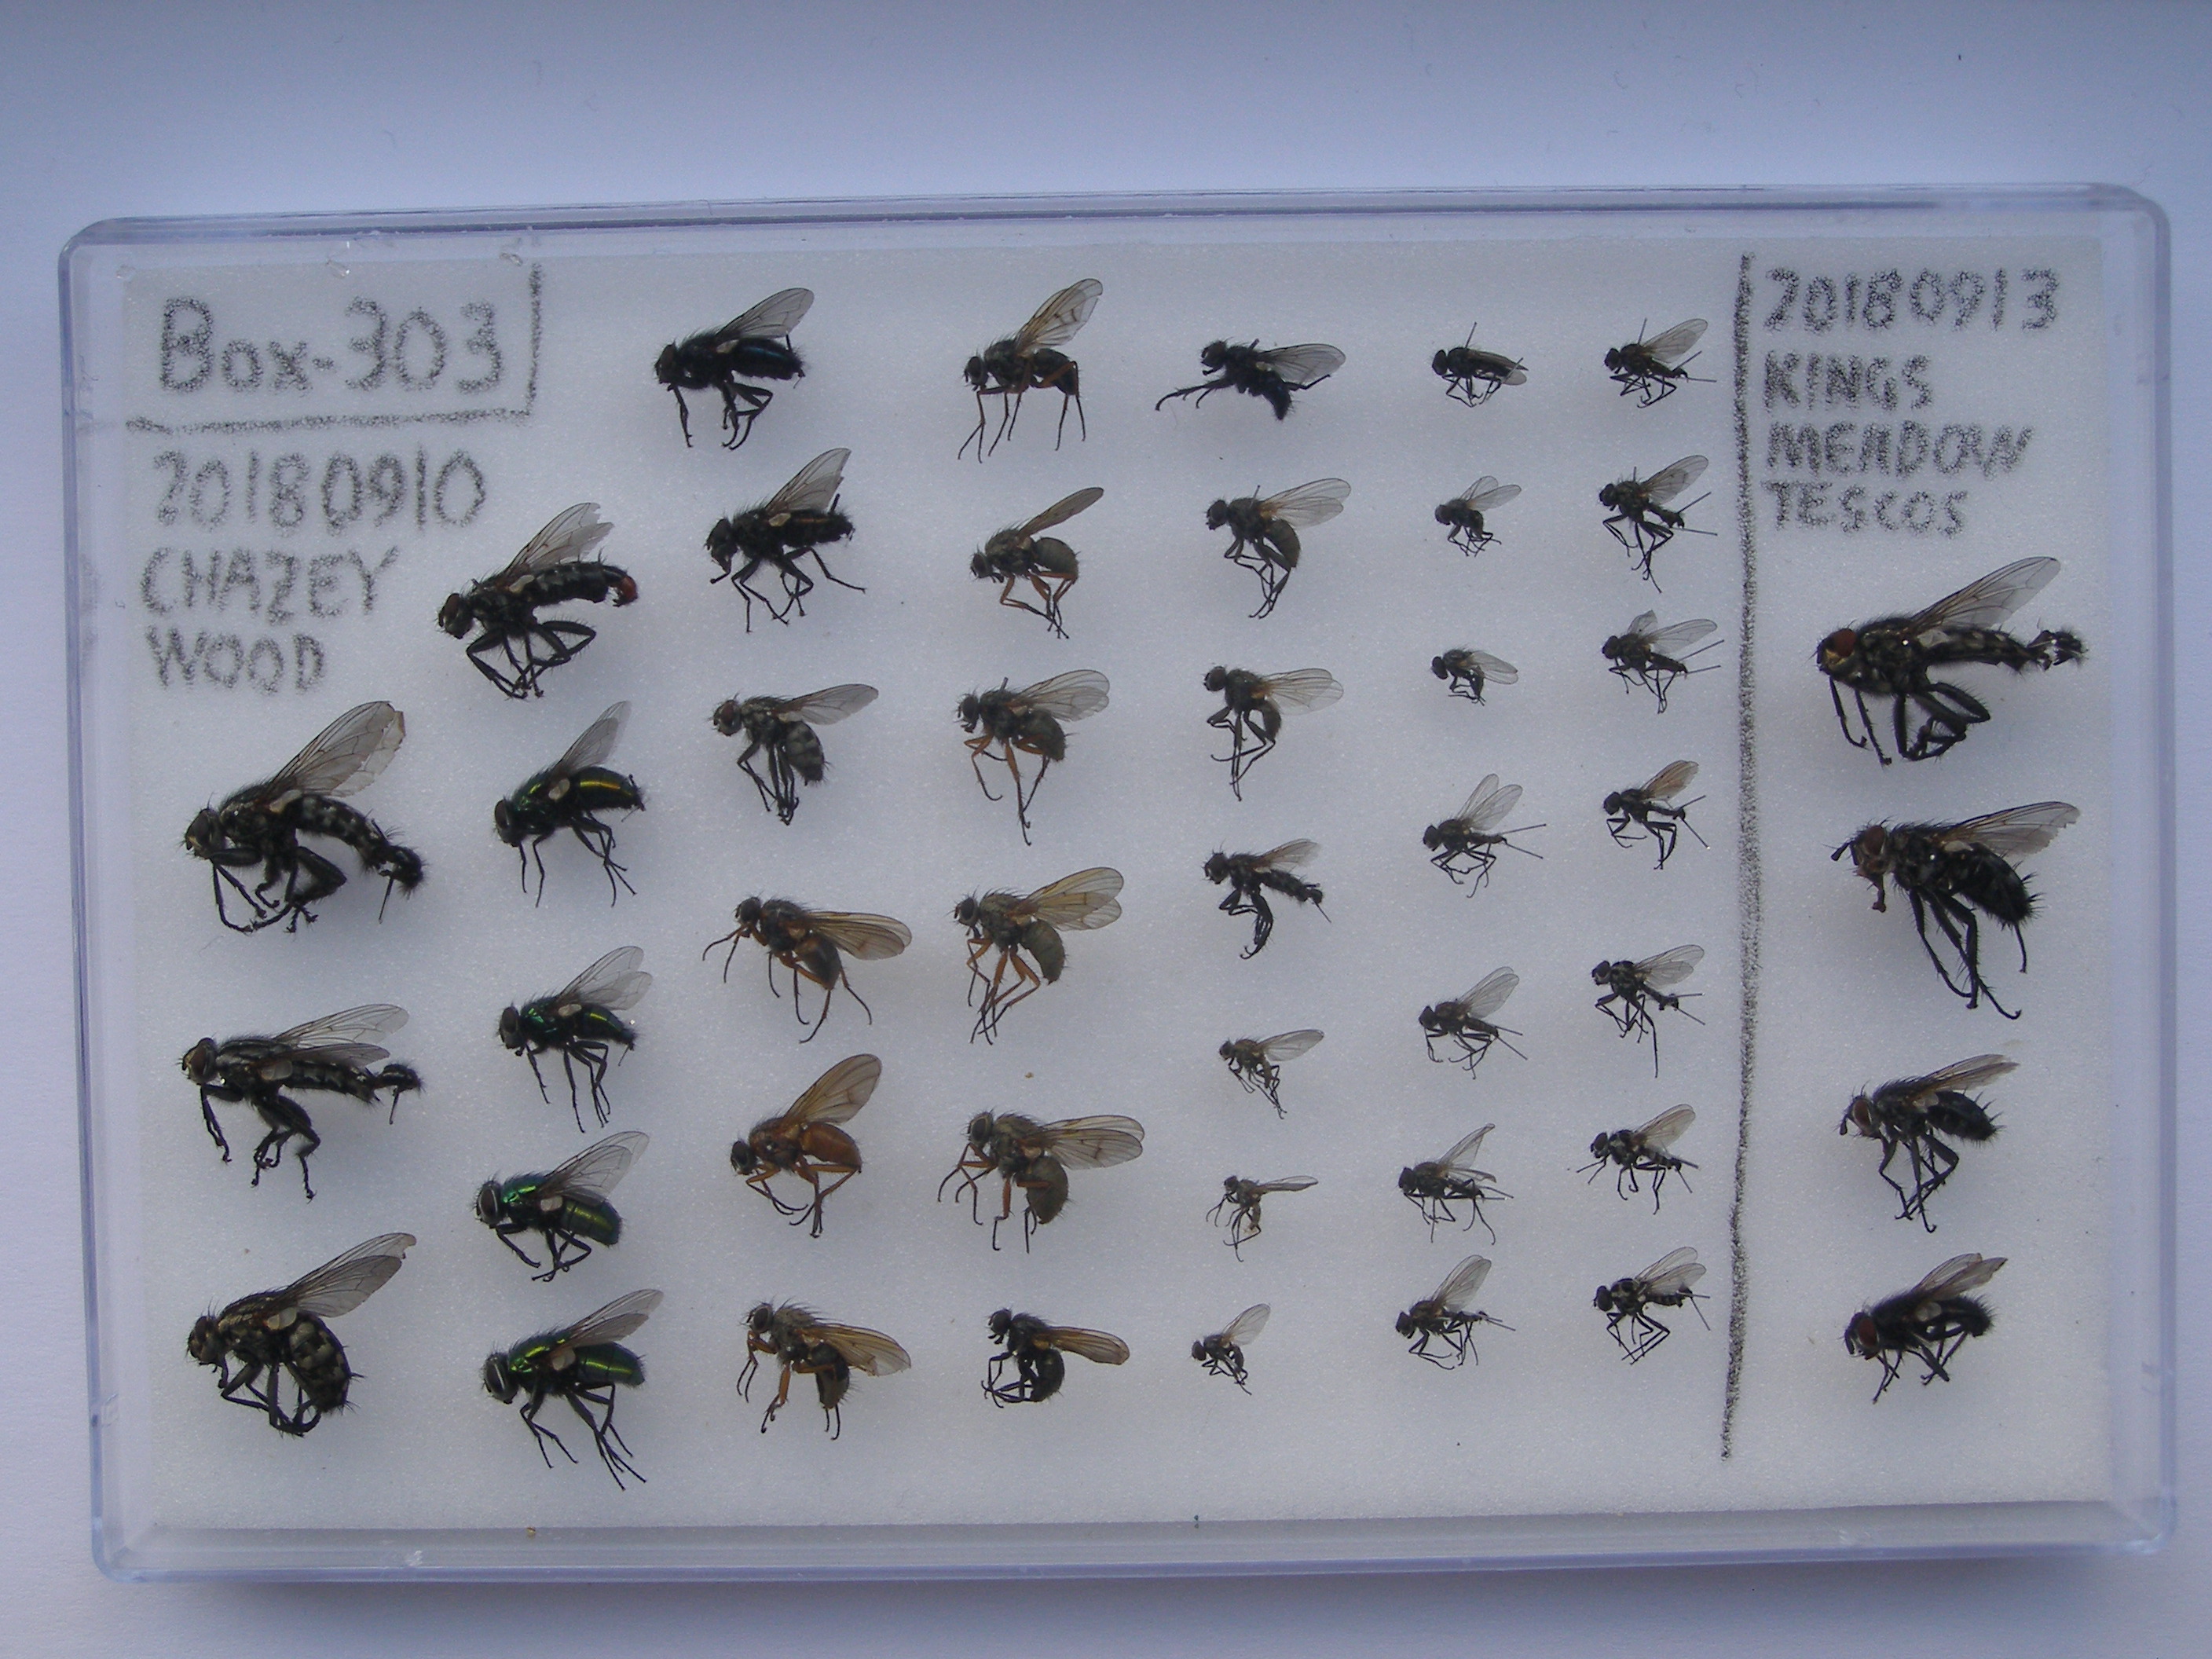 Box-303
20180910
CHAZEY
WOOD
20180913
KINGS
MEADOW
TESCOS